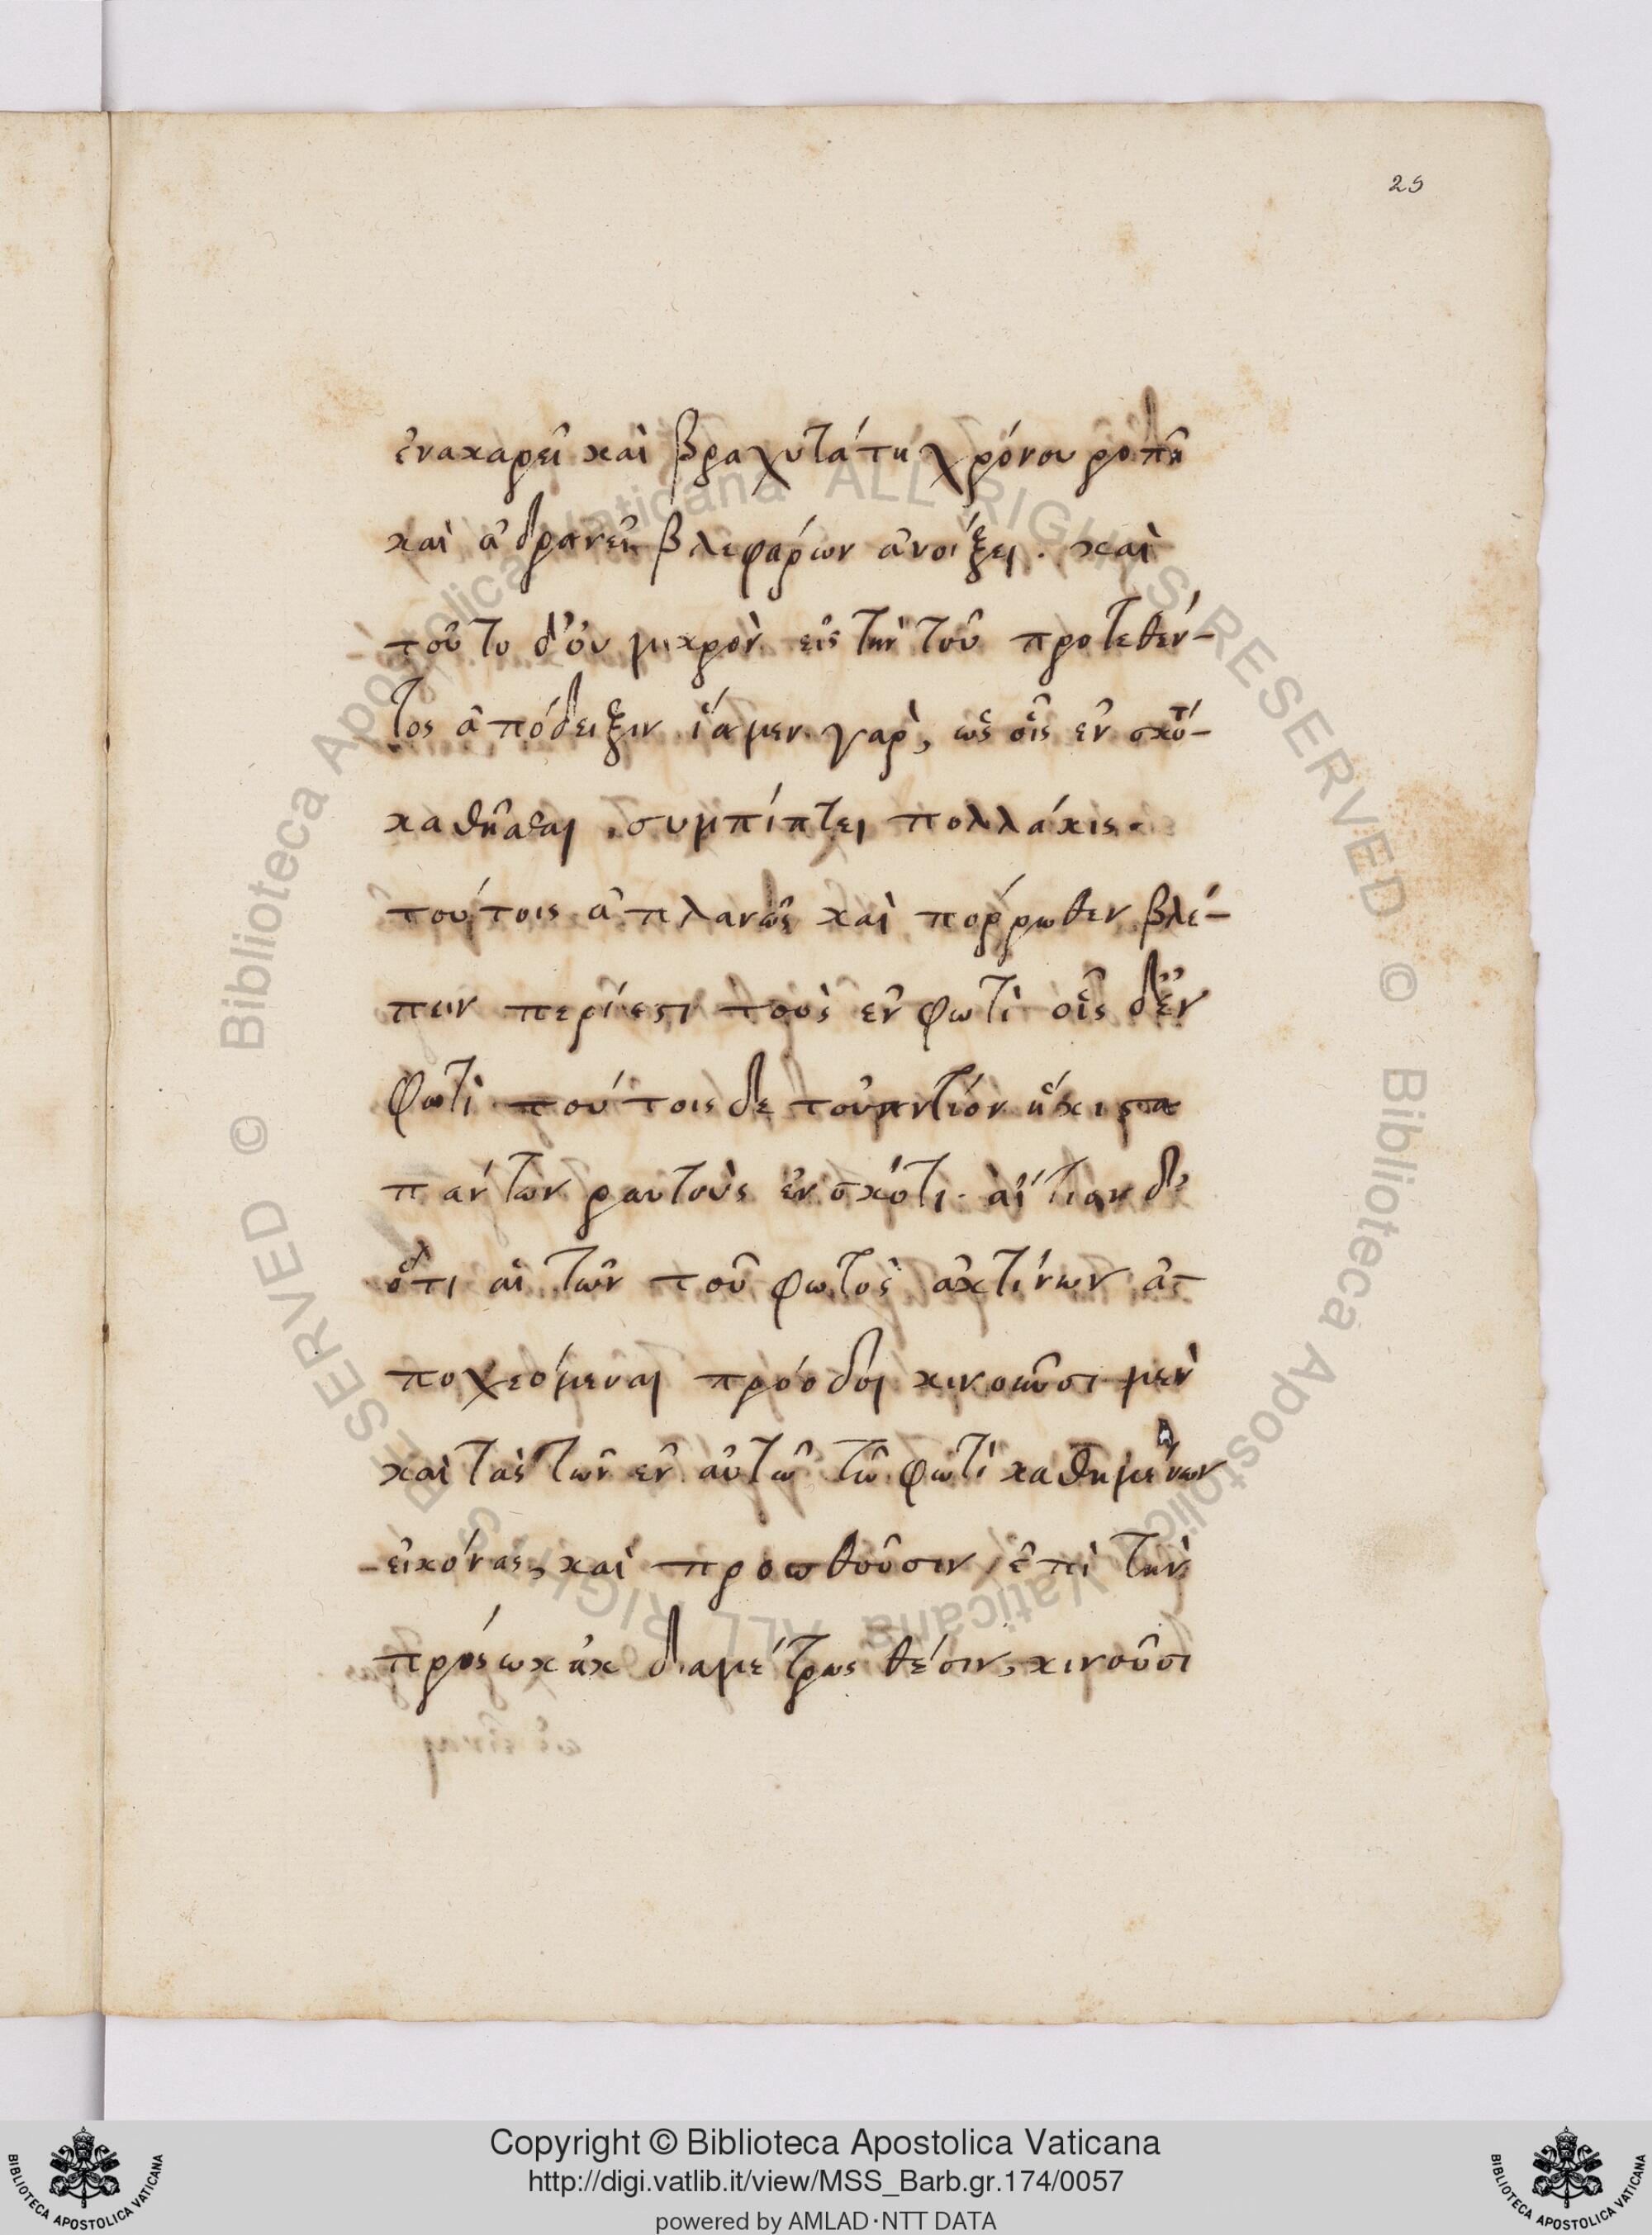 29
ἐνακαρεῖ καὶ βραχυτάτη χρόνου ροπῆ
καὶ ἀδρανεῖ βλεφαρων ἀνοίξει. καὶ
τοῦτο δ' ὀυ μικρὸν εἰς τὴν τοῦ προτεθέν-
τος ἀπόδειξιν ἴσμεν γαρ, ὡς οἷς ἐν σκότ-
καθῆσθαι συμπίπτει πολλάκις.
τούτοις ἀπλανῶς καὶ πόρρωθεν βλέ-
πειν περίεστι τοὺς ἐν φωτὶ οἷς δ' ἐν
φωτὶ τούτοις δε τουναντίον ἥκιστα
πάντων αυτοὺς ἐν σκότι. ἀιτίαν δ'
ὅτι αἱ τῶν τοῦ φωτὸς ἀκτίνων ἀ-
ποχεόμεναι πρόοδοι κινοῦσι μεν
καὶ τὰς τῶν ἐν αὐτῶ τῶ φωτὶ καθημένων
εἰκόνας, καὶ προωθοῦσιν ἐπὶ τὴν
διαμέτρως θέσιν, κινοῦσι
Copyright © Biblioteca Apostolica Vaticana
http://digi.vatlib.it/view/MSS_Barb.gr.174/0057
powered by AMLAD·NTT DATA
BIBLIOTECA APOSTOLICA VATICANA
BIBLIOTECA APOSTOLICA VATICANA
© Biblioteca Apostolica Vaticana ALL RIGHTS RESERVED
© Biblioteca Apostolica Vaticana ALL RIGHTS RESERVED